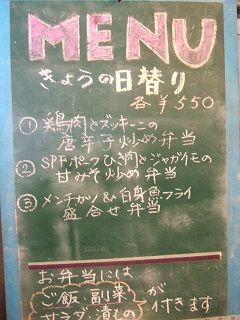 MENU
きょうの日替り
各¥550
① 鶏肉とズッキーニの
唐辛子炒め弁当
② SPFポークひき肉とジャガイモの
甘みそ炒め弁当
③ メンチカツ&白身魚フライ
盛合せ弁当
お弁当には
ご飯、副菜
サラダ、漬もの
が
付きます